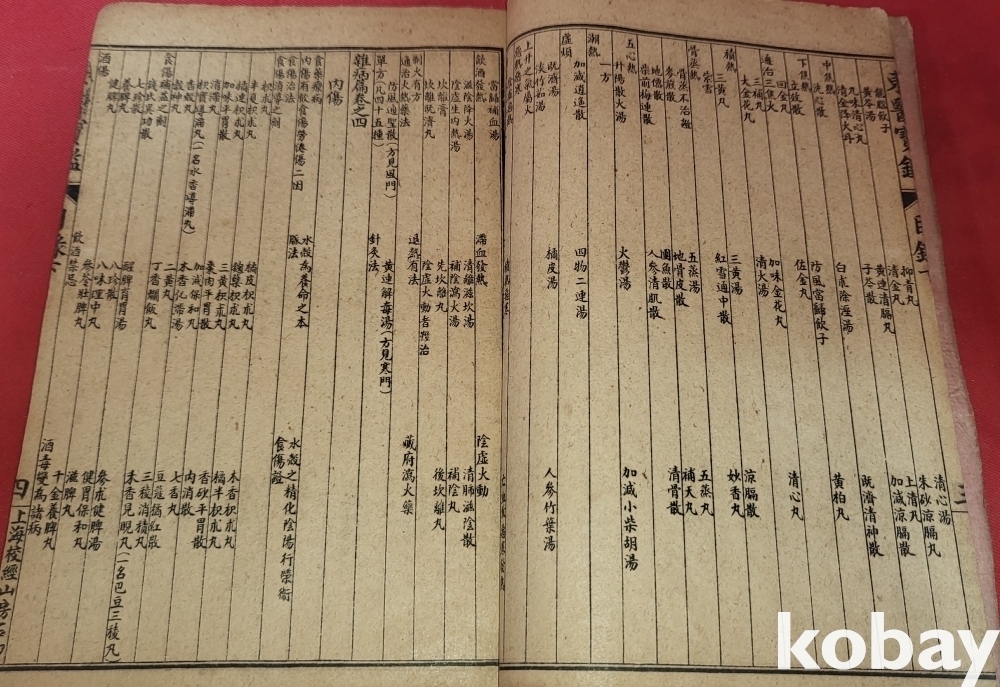 龍腦飲子 抑青丸 清心湯
黃芩湯 清金丸 朱砂涼膈丸
九味清心丸 黃連清膈丸 上清丸
清金降火丹 子芩散 加減涼膈散
中焦熱 既濟清神散
洗心散 白朮除濕湯 黃柏丸
下焦熱 防風當歸飲子
立效散 佐金丸 清心丸
回金丸
通治三焦火
三補丸 加味金花丸
大金花丸 清火湯 涼膈散
積熱
三黃丸 三黃湯 妙香丸
紫雪 紅雪通中散
骨蒸熱
骨蒸不治證 五蒸湯 五蒸丸
地骨皮散 補天丸
地仙散 團魚散 清骨散
柴前梅連散 人參清肌散
五心熱
升陽散火湯 火鬱湯 加減小柴胡湯
潮熱
一方
加減逍遙散 四物二連湯
虛煩
淡竹茹湯 橘皮湯 人參竹葉湯
既濟湯
上升之氣屬火
當歸補血湯
飲酒發熱 滯血發熱 陰虛火動
滋陰降火湯 清離滋坎湯 清肺滋陰散
陰虛生內熱湯 補陰瀉火湯 補陰丸
坎離膏 先坎離丸 後坎離丸
坎離既濟丸 陰虛火動者難治
制火有方 退熱有法 臟府瀉火藥
通治火熱藥法
防風通聖散(方見風門) 黃連解毒湯(方見寒門)
單方(凡四十五種) 針灸法
雜病篇卷之四
內傷
食藥療病 水穀為養命之本 水穀之精化陰陽行榮衛
內傷有飲食傷勞倦傷二因 脈法 食傷證
食傷治法
食傷消導之劑
枳朮丸 橘皮枳朮丸 木香枳朮丸
半夏枳朮丸 麴蘗枳朮丸 橘半枳朮丸
橘連枳朮丸 三黃枳朮丸 香砂平胃散
加味平胃散 棗肉平胃散 內消散
消滯丸 加減保和丸 七香丸
枳實導滯丸(一名木香導滯丸) 木香化滯湯 豆蔻橘紅散
香殼丸 二黃丸 三稜消積丸
穀神丸 丁香爛飯丸 禾香見晛丸(一名巴豆三稜丸)
食傷補益之劑
醒脾育胃湯
七珍散 八珍散 參朮健脾湯
養脾丸 八味理中丸 健胃保和丸
健脾丸 參苓壯脾丸 滋脾丸
千金養脾丸
酒傷 飲酒禁忌 酒毒變為諸病
東醫寶鑑 目錄下 三
四 上海校經山房石印
kobay